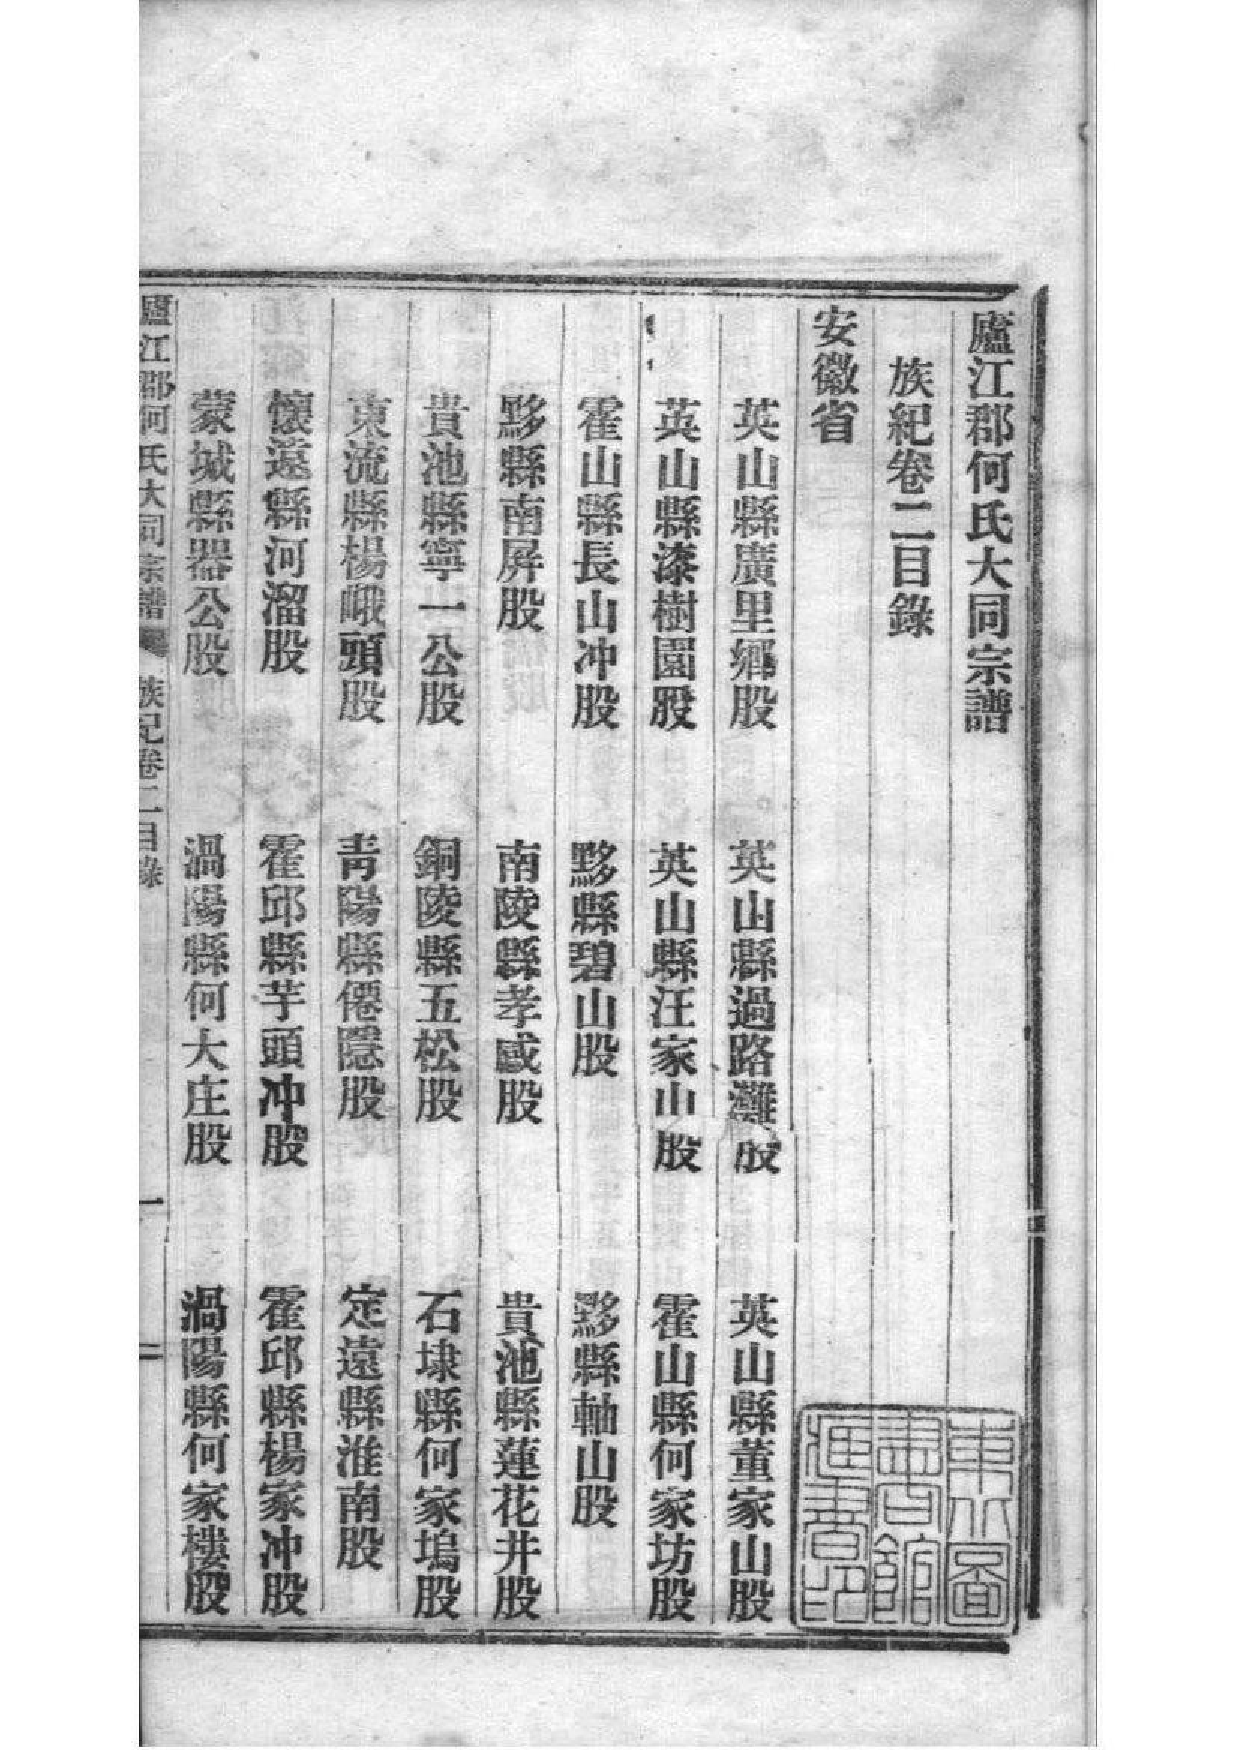 廬江郡何氏大同宗譜
族紀卷二目錄
安徽省
英山縣廣里鄉股　英山縣過路灘股　英山縣董家山股
英山縣漆樹園股　英山縣汪家山股　霍山縣何家坊股
霍山縣長山冲股　黟縣碧山股　黟縣軸山股
黟縣南屏股　南陵縣孝感股　貴池縣蓮花井股
貴池縣寧一公股　銅陵縣五松股　石埭縣何家塢股
東流縣楊峨頭股　青陽縣僊隱股　定遠縣淮南股
懷遠縣河溜股　霍邱縣芋頭冲股　霍邱縣楊家冲股
蒙城縣器公股　渦陽縣何大庄股　渦陽縣何家樓股
廬江郡何氏大同宗譜　族紀卷二目錄　一　二